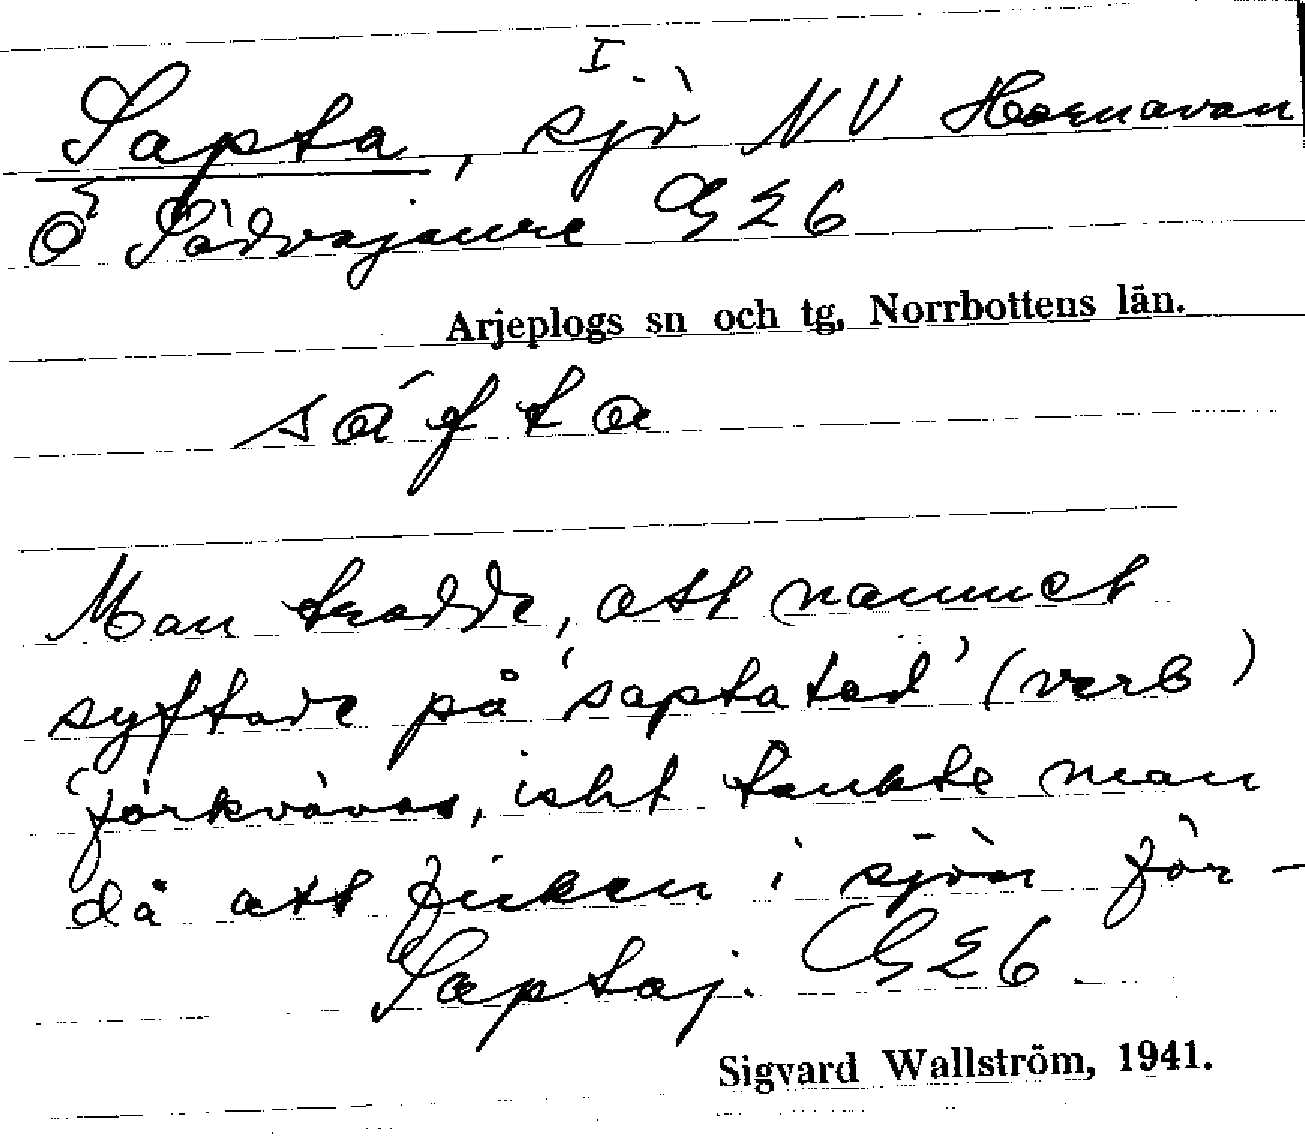 I
Sapta, sjö NV Hornavan
Ö Sädvajaure G26
Arjeplogs sn och tg, Norrbottens län.
sáfta
Man trodde, att namnet
syftade på 'saptatad' (verb)
förkvävas, isht tänkte man
då att fisken i sjön för-
Saptaj. G26
Sigvard Wallström, 1941.